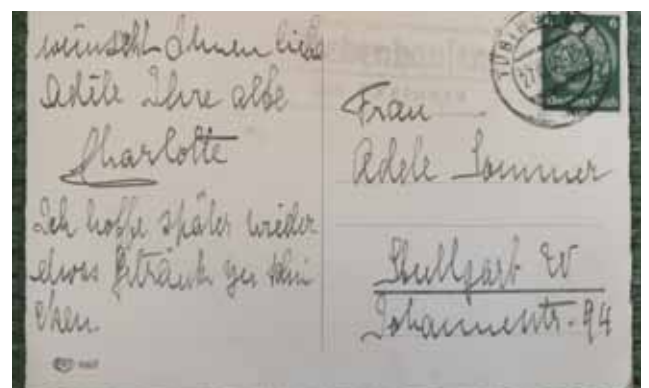 wünscht Ihnen liebe
Adele Ihre alte
Charlotte
Ich hoffe später wieder
etwas zu schi
cken.
Frau
Adele Sommer
Stuttgart W
Johannesstr. 94
TÜBINGEN
27
6